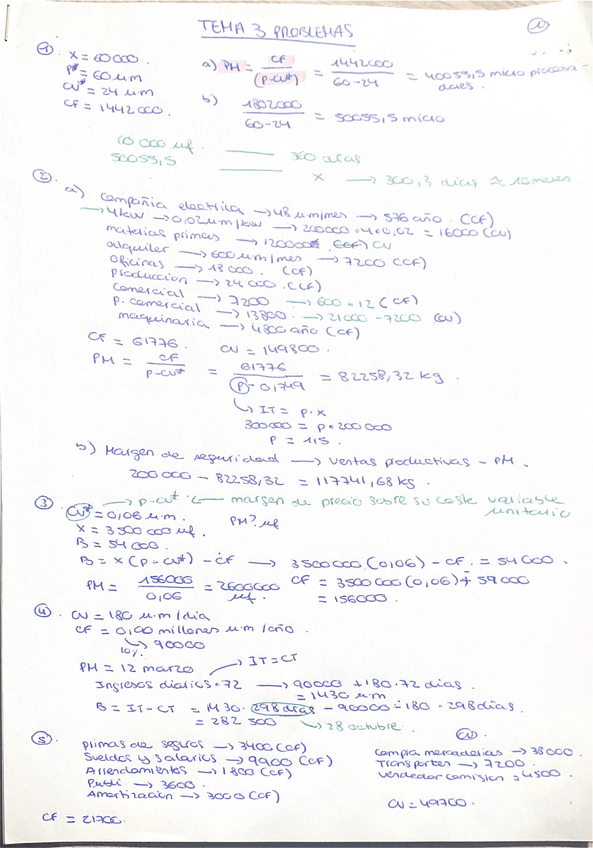 TEMA 3 PROBLEMAS
1
1. x = 60000.
P* = 60 um
CV* = 24 um.
CF = 1442000.
a) PM = CF / (P-CV*) = 1442000 / 60-24 = 40055,5 micro procesadores.
b) 1802000 / 60-24 = 50055,5 micro
60 000 uf. — 360 días
50055,5 — x → 300,3 días ≈ 10 meses.
2. a) Compañia electrica → 48 um/mes → 576 año. (CF)
→ 4kw → 0,02 um/kw → 200000·4·0,02 = 16000 (CV)
materias primas → 120000 (CF) CV
alquiler → 600 um/mes → 7200 (CF)
Oficinas → 18000. (CF)
producción → 24000. (CF)
Comercial → 7200 → 600·12 (CF)
P. comercial → 13800 → 21000-7200 (CV)
maquinaria → 4800 año (CF)
CF = 61776 CV = 149800.
PM = CF / P-CV* = 61776 / P-0,749 = 82258,32 kg.
↳ IT = P·x
300000 = p·200000
P = 1,5.
b) Margen de seguridad → ventas productivas - PM.
200000 - 82258,32 = 117741,68 kg.
3. CV* = 0,06 u.m. → P-CV* ← margen de precio sobre su coste variable unitario
X = 3500000 uf. PM? uf
B = 54000.
B = X (P-CV*) - CF → 3500000 (0,06) - CF. = 54000.
PM = 156000 / 0,06 = 2600000 uf. CF = 3500000 (0,06) + 54000
= 156000.
4. CV = 180 u.m /dia
CF = 0,90 millones u.m /año.
10% ↳ 90000
PM = 12 marzo → IT = CT
Ingresos diarios·72 → 90000 + 180·72 dias.
= 1430 u.m
B = IT-CT = 1430·298 dias - 90000 - 180·298 dias.
= 282 500 ↳ 28 octubre.
5. primas de seguros → 3400 (CF)
Sueldos y salarios → 9900 (CF)
Arrendamientos → 1800 (CF)
Publi → 3600.
Amortización → 3000 (CF)
CF = 21700.
CV
Compra mercaderías → 38000.
Transportes → 7200.
Vendedor comisión = 4500.
CV = 49700.